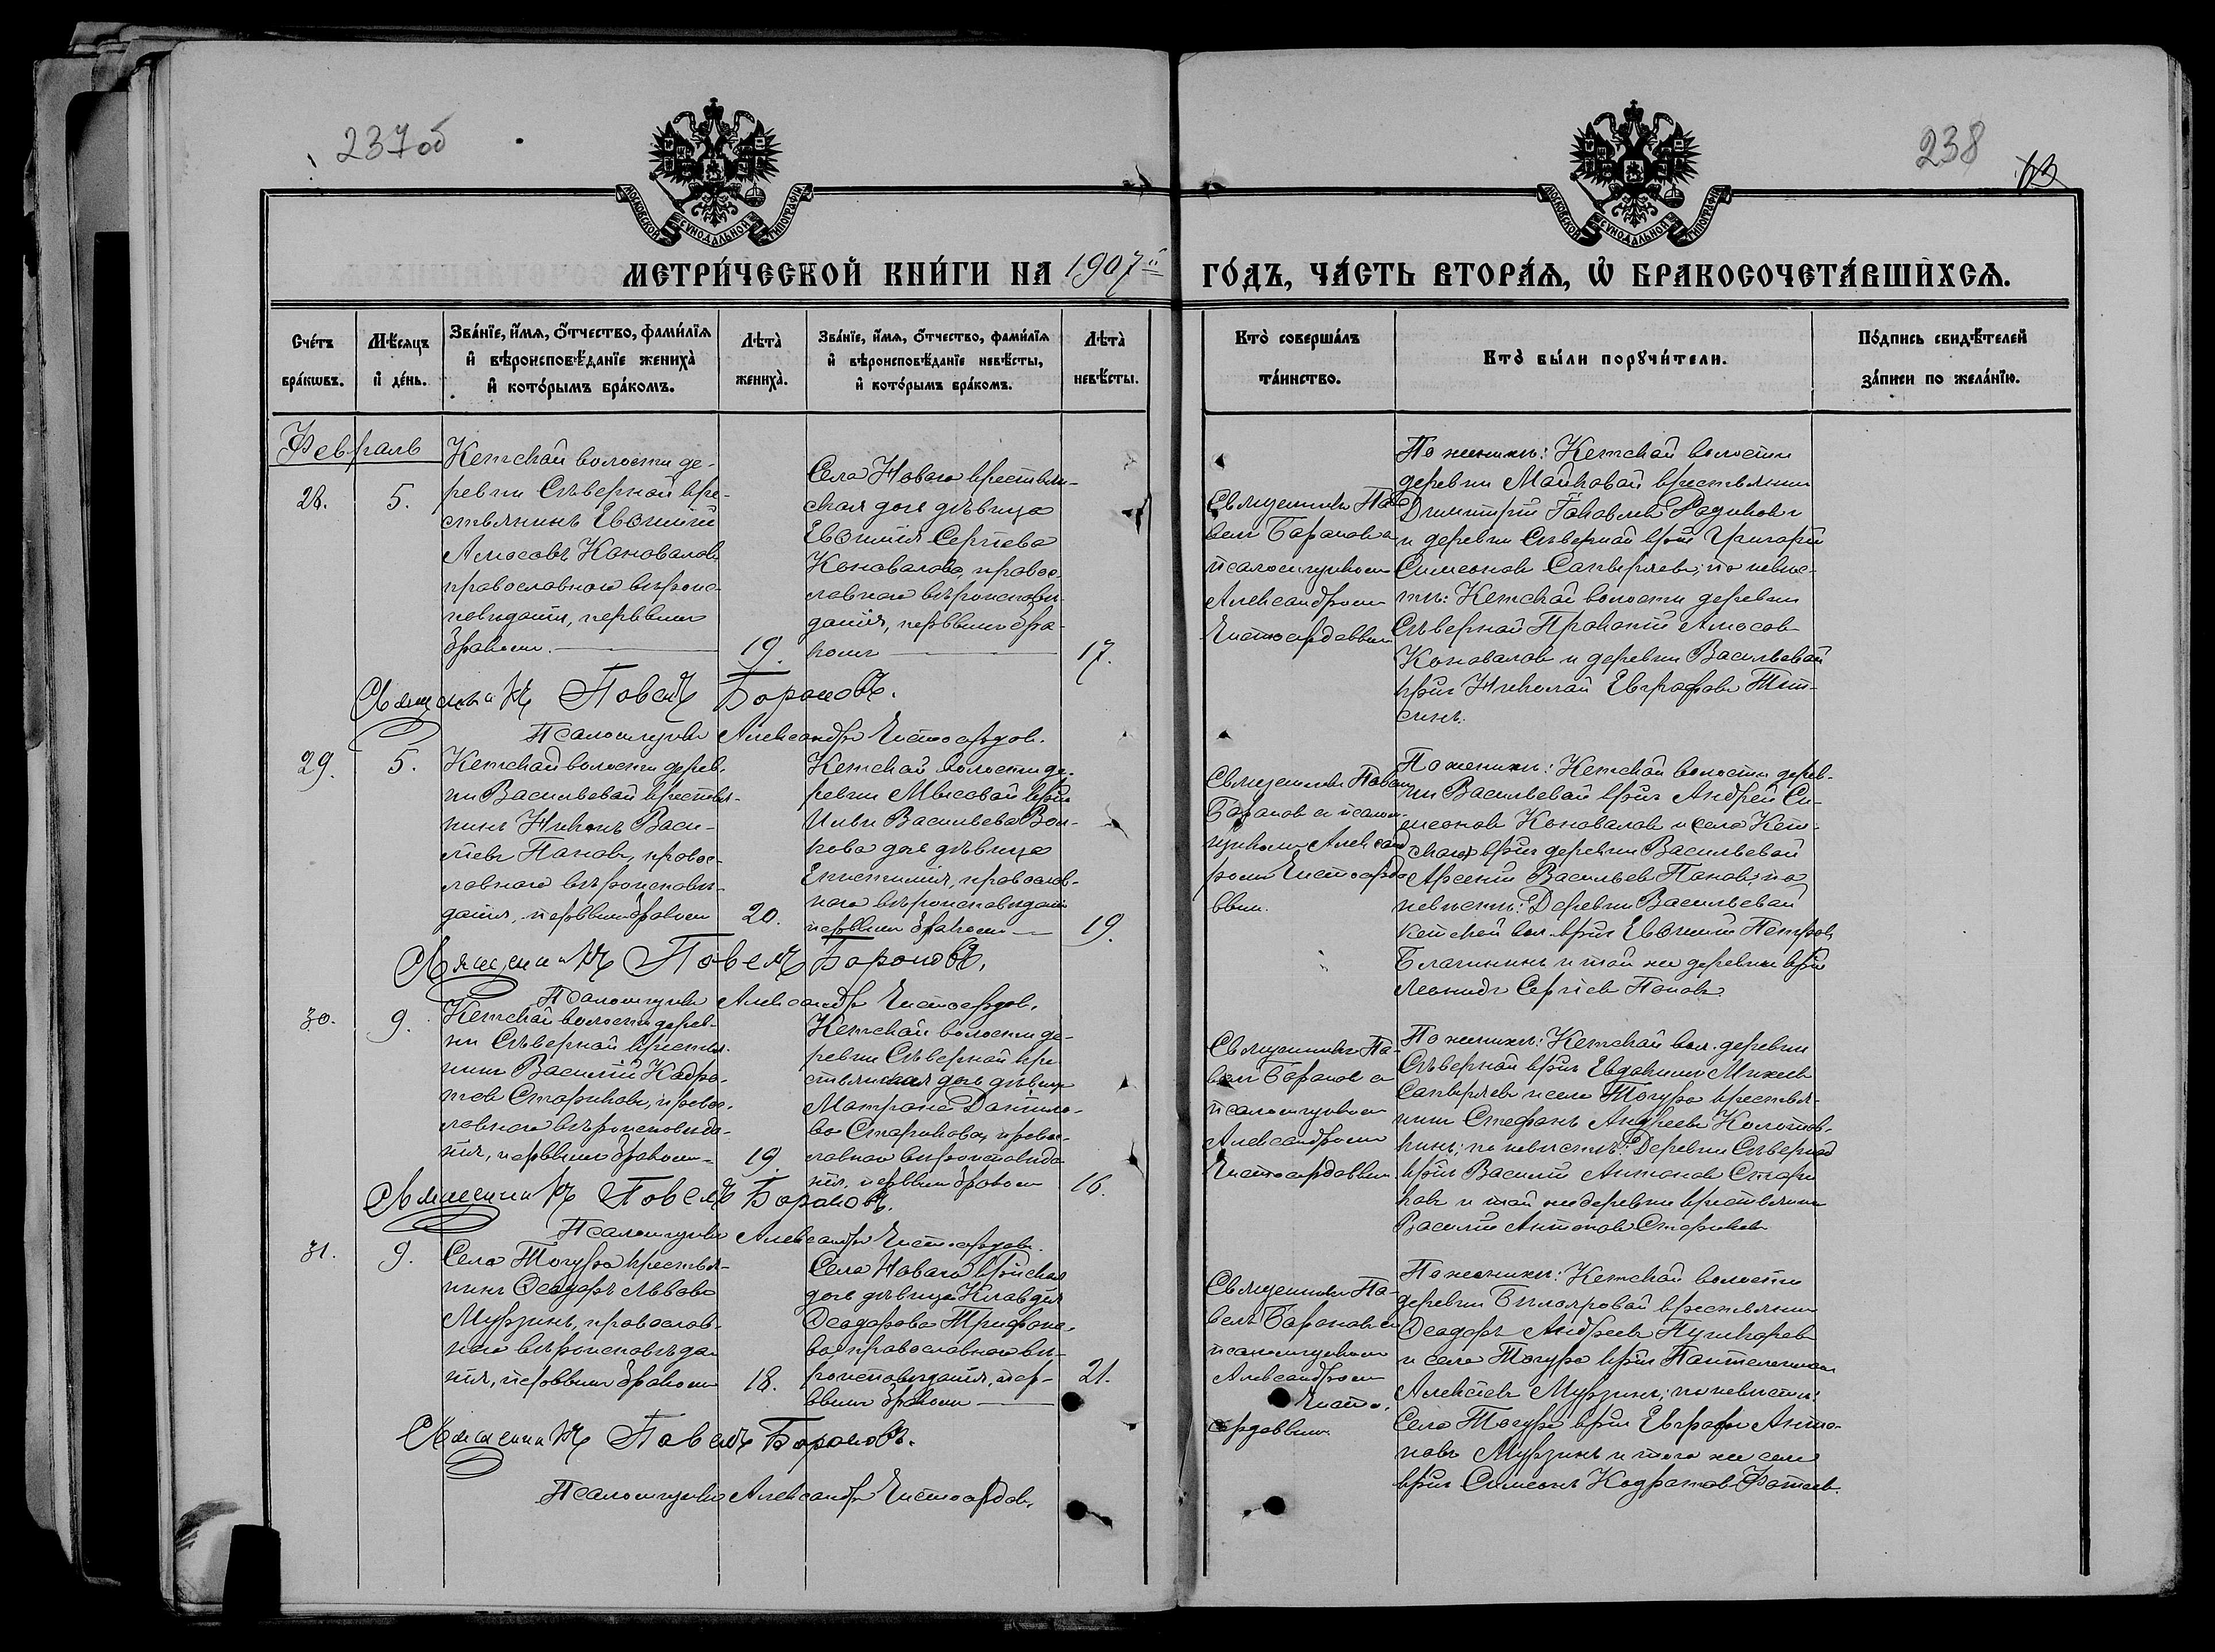 237об
238
13
МОСКОВСКОЙ СѴНОДАЛЬНОЙ ТИПОГРАФІИ
МОСКОВСКОЙ СѴНОДАЛЬНОЙ ТИПОГРАФІИ
МЕТРИ́ЧЕСКОЙ КНИ́ГИ НА 1907й ГО́ДЪ, ЧА́СТЬ ВТОРА́Я, Ѡ҆ БРАКОСОЧЕТА́ВШИХСЯ.
Сче́тъ
бра́кѡвъ.
Мѣ́сяцъ
и҆ де́нь.
Зва́нїе, и҆́мя, ѻ҆́тчество, фами́лїя
и҆ вѣроисповѣ́данїе жениха̀
и҆ кото́рымъ бра́комъ.
Лѣта̀
жениха̀.
Зва́нїе, и҆́мя, ѻ҆́тчество, фами́лїя
и҆ вѣроисповѣ́данїе невѣ́сты,
и҆ кото́рымъ бра́комъ.
Лѣта̀
невѣ́сты.
Кто̀ соверша́лъ
та́инство.
Кто̀ бы́ли порꙋчи́тели.
По́дпись свидѣ́телей
за́писи по жела́нїю.
Февраль
28.
5.
Кетской волости де-
ревни Сѣверной кре-
стьянинъ Евѳимій
Амосовъ Коновалов,
православного вѣроис-
повѣданія, первымъ
бракомъ.
19.
Села Новаго крестьян-
ская дочь дѣвица
Евѳимія Сергіева
Коновалова, правос-
лавного вѣроисповѣ-
данія, первымъ бра-
комъ
17.
Священникъ Па-
велъ Баранов с
псаломщикомъ
Александромъ
Чистосердовым
По женихѣ: Кетской волости
деревни Майковой крестьянин
Димитрій Яковлев Родиков
и деревни Сѣверной кр-нъ Григорій
Симеонов Сапыряев; по невѣс-
тѣ: Кетской волости деревни
Сѣверной Прокопій Амосов
Коновалов и деревни Васильевой
кр-нъ Николай Евграфов
Священникъ Павелъ Барановъ.
Псаломщикъ Александръ Чистосердов.
29.
5.
Кетской волости дерев-
ни Васильевой крестья-
нинъ Никонъ Васи-
ліевъ Панов, правос-
лавного вѣроисповѣ-
данія, первымъ бракомъ
20.
Кетской волости де-
ревни Мысовой кр-на
Ильи Васильева Вол-
кова дочь дѣвица
Епистимія, православ-
ного вѣроисповѣданія
первымъ бракомъ
19.
Священникъ Павел
Баранов с псалом-
щикомъ Александ-
ромъ Чистосердо-
вым.
По женихѣ: Кетской волости дерев-
ни Васильевой кр-нъ Андрей Си-
меонов Коновалов и села Кет-
скаго кр-нъ деревни Васильевой
Арсеній Васильев Панов; по
невѣстѣ: Деревни Васильевой
Кетской вол. кр-нъ Евѳимій Петров
Благининъ и той же деревни кр-нъ
Леонидъ Сергіев Панов
Священникъ Павелъ Барановъ.
Псаломщикъ Александръ Чистосердов.
30.
9.
Кетской волости дерев-
ни Сѣверной крестья-
нинъ Василій Кодра-
тов Стариков, правос-
лавного вѣроисповѣда-
нія, первымъ бракомъ
19.
Кетской волости де-
ревни Сѣверной кре-
стьянская дочь дѣвица
Матрона Данило-
ва Старикова, правос-
лавного вѣроисповѣда-
нія, первым браком
16.
Священникъ Па-
велъ Баранов с
псаломщиком
Александромъ
Чистосердовым.
По женихѣ: Кетской вол. деревни
Сѣверной кр-нъ Евдоким Михеев
Сапыряев и села Тогура крестья-
нинъ Стефанъ Андреев Колотов-
кинъ; по невѣстѣ: Деревни Сѣверной
кр-нъ Василій Антонов Стари-
ков и той же деревни крестьянин
Василій Антонов Стариков
Священникъ Павелъ Барановъ.
Псаломщикъ Александръ Чистосердов.
31.
9.
Села Тогура крестья-
нинъ Ѳеодоръ Львовъ
Мурзинъ, православ-
ного вѣроисповѣда-
нія, первымъ бракомъ
18.
Села Новаго кр-нская
дочь дѣвица Клавдія
Ѳеодорова Трифоно-
ва, православного вѣ-
роисповѣданія, пер-
вымъ бракомъ
21.
Священникъ Па-
велъ Баранов с
псаломщиком
Александромъ
Чисто-
сердовым.
По женихѣ: Кетской волости
деревни Бѣлояровой крестьянин
Ѳеодоръ Андреев Пушкарев
и села Тогура кр-нъ Пантелеимон
Алексѣев Мурзинъ; по невѣстѣ:
Села Тогура кр-нъ Евграфъ Анто-
новъ Мурзинъ и того же села
кр-нъ Симеонъ Кодратов Фатеев.
Священникъ Павелъ Барановъ.
Псаломщикъ Александръ Чистосердов.